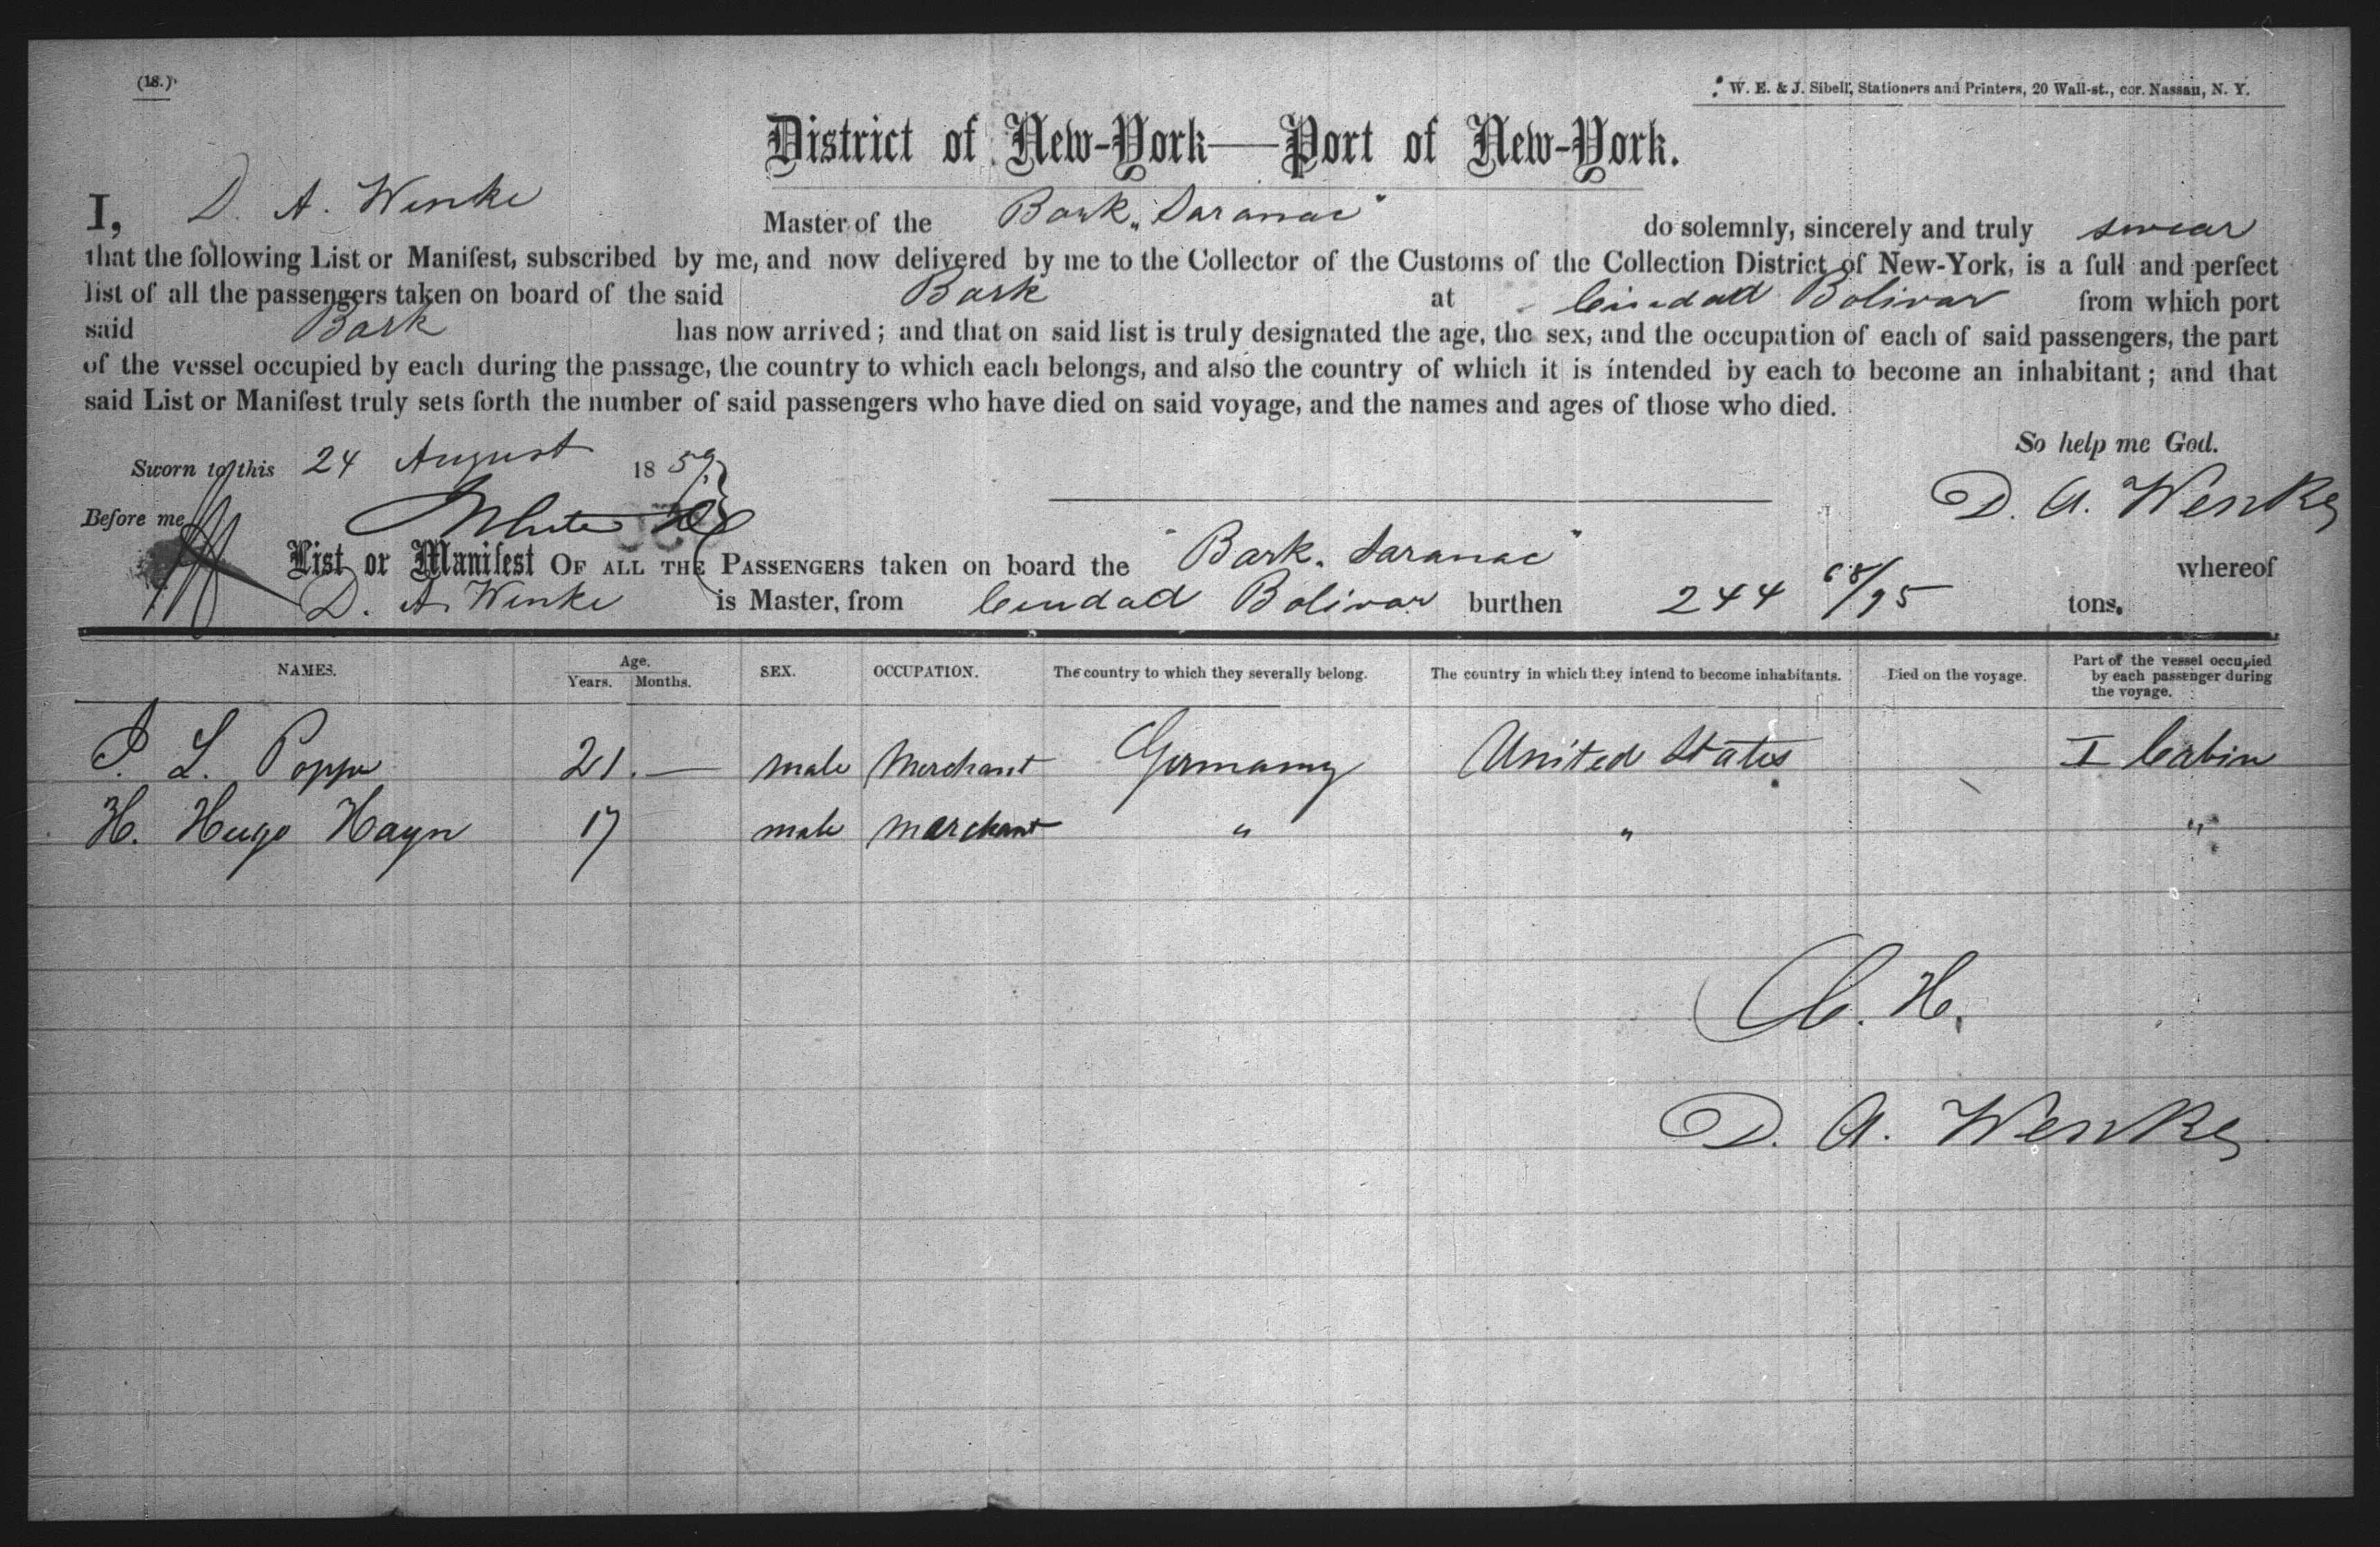 (18.)
W. E. & J. Sibell, Stationers and Printers, 20 Wall-st., cor. Nassau, N. Y.
District of New-York—Port of New-York.
I, D. A. Wenke Master of the Bark „Saranac" do solemnly, sincerely and truly swear
that the following List or Manifest, subscribed by me, and now delivered by me to the Collector of the Customs of the Collection District of New-York, is a full and perfect
list of all the passengers taken on board of the said Bark at Ciudad Bolivar from which port
said Bark has now arrived; and that on said list is truly designated the age, the sex, and the occupation of each of said passengers, the part
of the vessel occupied by each during the passage, the country to which each belongs, and also the country of which it is intended by each to become an inhabitant; and that
said List or Manifest truly sets forth the number of said passengers who have died on said voyage, and the names and ages of those who died.
So help me God.
Sworn to this 24 August 1859.
D. A. Wenke
Before me
List or Manifest OF ALL THE PASSENGERS taken on board the "Bark. Saranac" whereof
D. A. Wenke is Master, from Ciudad Bolivar burthen 244 68/95 tons.
NAMES. Age. Years. Months. SEX. OCCUPATION. The country to which they severally belong. The country in which they intend to become inhabitants. Died on the voyage. Part of the vessel occupied by each passenger during the voyage.
L. Poppe 21. — male Merchant Germany United States I Cabin
H. Hugo Hayn 17 male merchant " " "
C. H.
D. A. Wenke